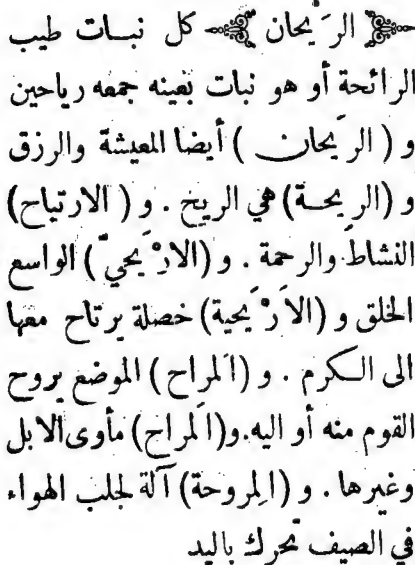 الرَيحان كل نبات طيب
الرائحة أو هو نبات بعينه جمعه رياحين
و ( الرَيحان ) أيضا المعيشة والرزق
و (الريحة) هي الريح . و ( الارتياح )
النشاط والرحمة . و (الارْيَحيّ) الواسع
الخلق و (الأرْيَحية) خصلة يرتاح معها
الى الكرم . و (المَراح) الموضع يروح
القوم منه أو اليه. و(المُراح) مأوى الابل
وغيرها . و (المِروحة) آلة لجلب الهواء
في الصيف تحرك باليد